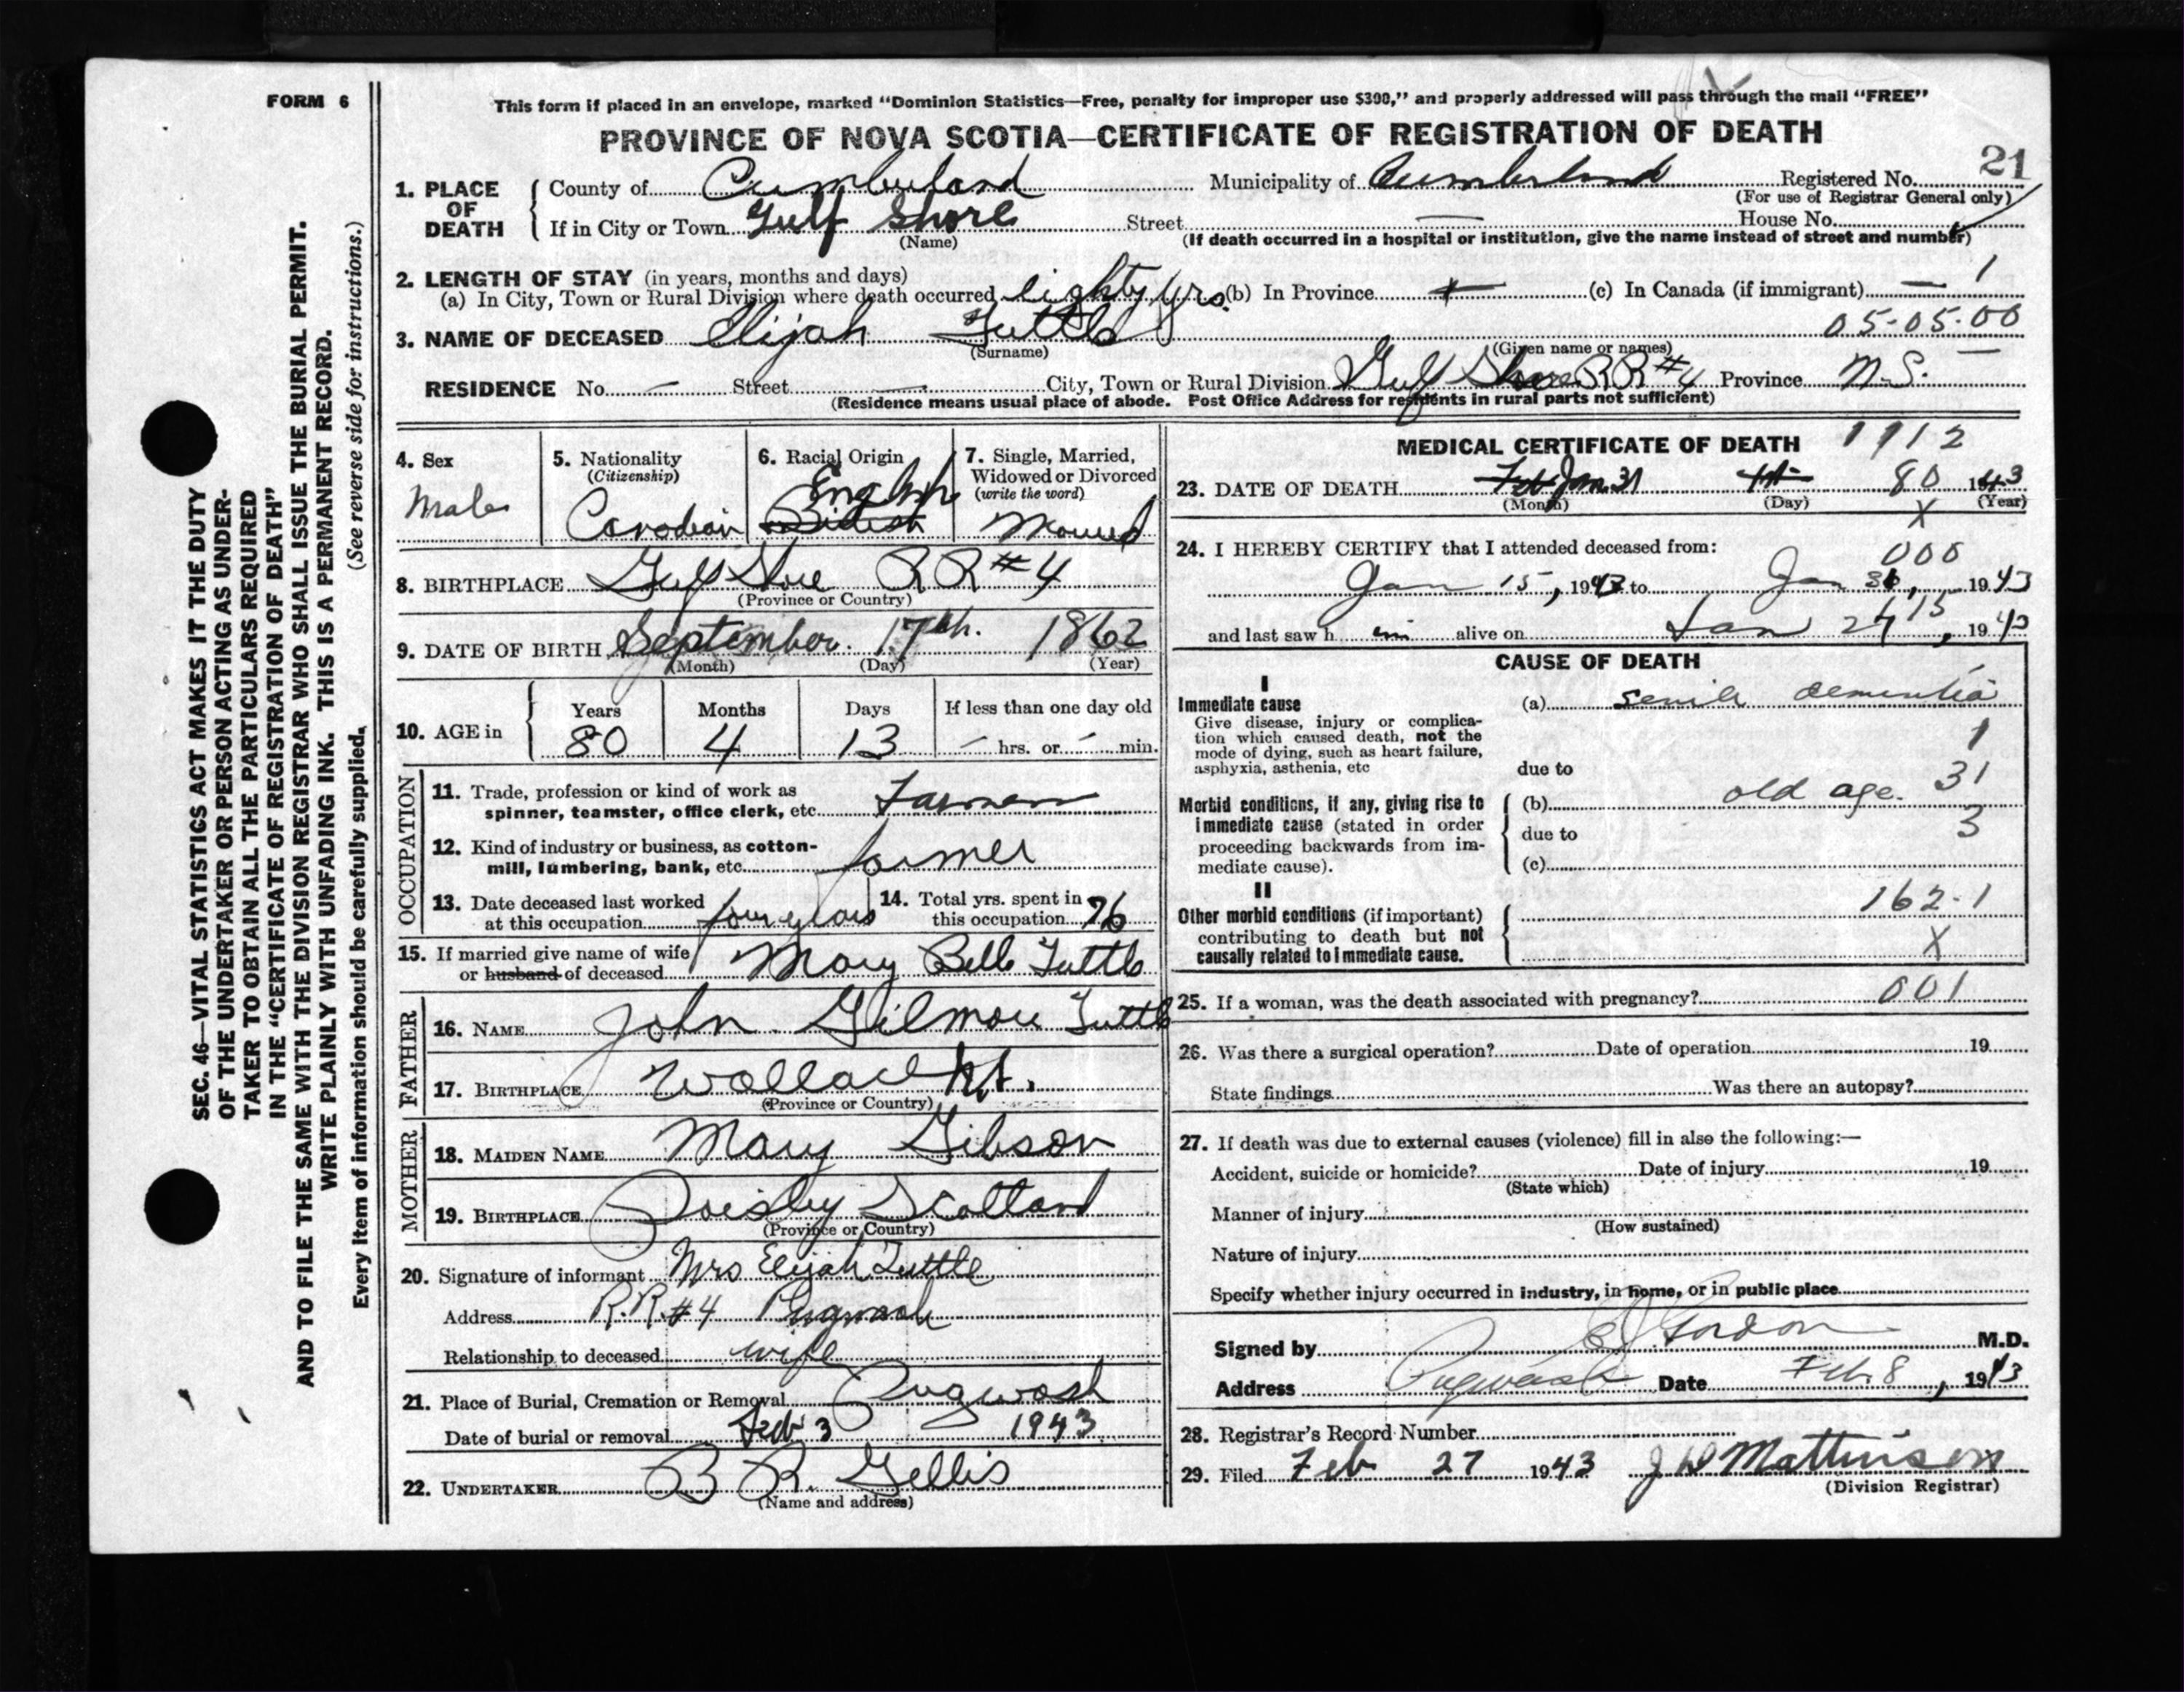 FORM 6
This form if placed in an envelope, marked “Dominion Statistics—Free, penalty for improper use $300,” and properly addressed will pass through the mail “FREE”
PROVINCE OF NOVA SCOTIA—CERTIFICATE OF REGISTRATION OF DEATH
21
1. PLACE OF DEATH { County of Cumberland Municipality of Cumberland Registered No.
(For use of Registrar General only)
If in City or Town Gulf Shore Street — House No.
(Name) (If death occurred in a hospital or institution, give the name instead of street and number)
2. LENGTH OF STAY (in years, months and days)
(a) In City, Town or Rural Division where death occurred eighty yrs. (b) In Province (c) In Canada (if immigrant) — 1
05-05-00
3. NAME OF DECEASED Elijah Tuttle
(Surname) (Given name or names)
RESIDENCE No. — Street — City, Town or Rural Division Gulf Shore RR #4 Province N.S.
(Residence means usual place of abode. Post Office Address for residents in rural parts not sufficient)
4. Sex
Male
5. Nationality
(Citizenship)
Canadian
6. Racial Origin
English
British
7. Single, Married, Widowed or Divorced
(write the word)
Married
8. BIRTHPLACE Gulf Shore RR #4
(Province or Country)
9. DATE OF BIRTH September 17th. 1862
(Month) (Day) (Year)
10. AGE in { Years Months Days If less than one day old
80 4 13 – hrs. or – min.
OCCUPATION
11. Trade, profession or kind of work as
spinner, teamster, office clerk, etc. Farmer
12. Kind of industry or business, as cotton-
mill, lumbering, bank, etc. farmer
13. Date deceased last worked
at this occupation four years
14. Total yrs. spent in
this occupation 76
15. If married give name of wife
or husband of deceased Mary Belle Tuttle
FATHER
16. NAME John Gilmour Tuttle
17. BIRTHPLACE Wallace N.S.
(Province or Country)
MOTHER
18. MAIDEN NAME Mary Gibson
19. BIRTHPLACE Paisley Scotland
(Province or Country)
20. Signature of informant Mrs Elijah Tuttle
Address R.R. #4 Pugwash
Relationship to deceased wife
21. Place of Burial, Cremation or Removal Pugwash
Date of burial or removal Feb 3 1943
22. UNDERTAKER B R. Gellis
(Name and address)
MEDICAL CERTIFICATE OF DEATH 1912
23. DATE OF DEATH Feb Jan. 31 1st 80 1943
(Month) (Day) (Year)
X
24. I HEREBY CERTIFY that I attended deceased from:
000
Jan 15, 1943 to Jan 31, 1943
and last saw him alive on Jan 27 15, 1943
CAUSE OF DEATH
I
Immediate cause
Give disease, injury or complica-
tion which caused death, not the
mode of dying, such as heart failure,
asphyxia, asthenia, etc
(a) senile dementia
1
due to
31
Morbid conditions, if any, giving rise to
immediate cause (stated in order
proceeding backwards from im-
mediate cause).
(b) old age.
due to 3
(c)
II
Other morbid conditions (if important)
contributing to death but not
causally related to immediate cause.
162-1
X
25. If a woman, was the death associated with pregnancy? 001
26. Was there a surgical operation? Date of operation 19
State findings Was there an autopsy?
27. If death was due to external causes (violence) fill in also the following:—
Accident, suicide or homicide? Date of injury 19
(State which)
Manner of injury
(How sustained)
Nature of injury
Specify whether injury occurred in industry, in home, or in public place
Signed by Gordon M.D.
Address Pugwash Date Feb. 8, 1943
28. Registrar's Record Number
29. Filed Feb 27 1943 J W Mattinson
(Division Registrar)
SEC. 46—VITAL STATISTICS ACT MAKES IT THE DUTY
OF THE UNDERTAKER OR PERSON ACTING AS UNDER-
TAKER TO OBTAIN ALL THE PARTICULARS REQUIRED
IN THE “CERTIFICATE OF REGISTRATION OF DEATH”
AND TO FILE THE SAME WITH THE DIVISION REGISTRAR WHO SHALL ISSUE THE BURIAL PERMIT.
WRITE PLAINLY WITH UNFADING INK. THIS IS A PERMANENT RECORD.
(See reverse side for instructions.)
Every item of information should be carefully supplied.